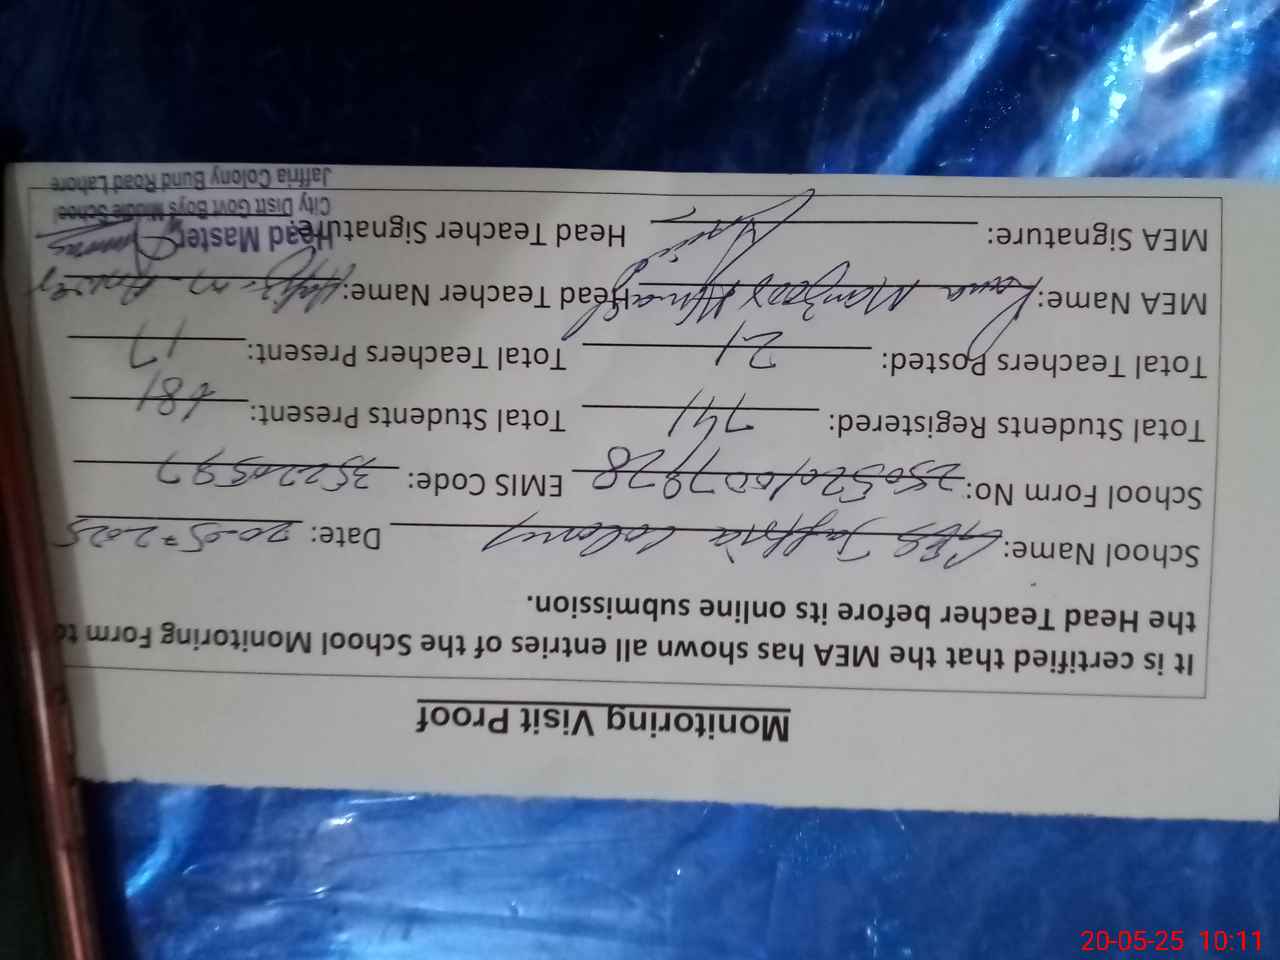 Monitoring Visit Proof
It is certified that the MEA has shown all entries of the School Monitoring Form to
the Head Teacher before its online submission.
School Name: Jaffria Colony Date: 20-05-2025
School Form No: EMIS Code: 35220597
Total Students Registered: 741 Total Students Present:
Total Teachers Posted: 21 Total Teachers Present: 17
MEA Name: Rana Manzoor Ahmad Head Teacher Name:
MEA Signature: Head Teacher Signature:
Head Master
City Distt Govt Boys Middle School
Jaffria Colony Bund Road Lahore
20-05-25 10:11